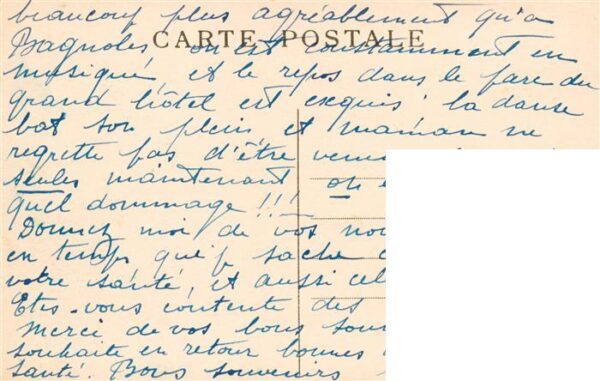 beaucoup plus agréablement qu'a
CARTE POSTALE
Bagnoles on est constamment en
musique, et le repos dans le parc du
grand hôtel est exquis la danse
bat son plein et maman ne
regrette pas d'être venue
seules maintenant oh
quel dommage !!!
Donnez moi de vos nou
en temps que je sache
votre santé, et aussi cel
Etes-vous contente des
Merci de vos bons souv
souhaite en retour bonnes
santé. Bons souvenirs